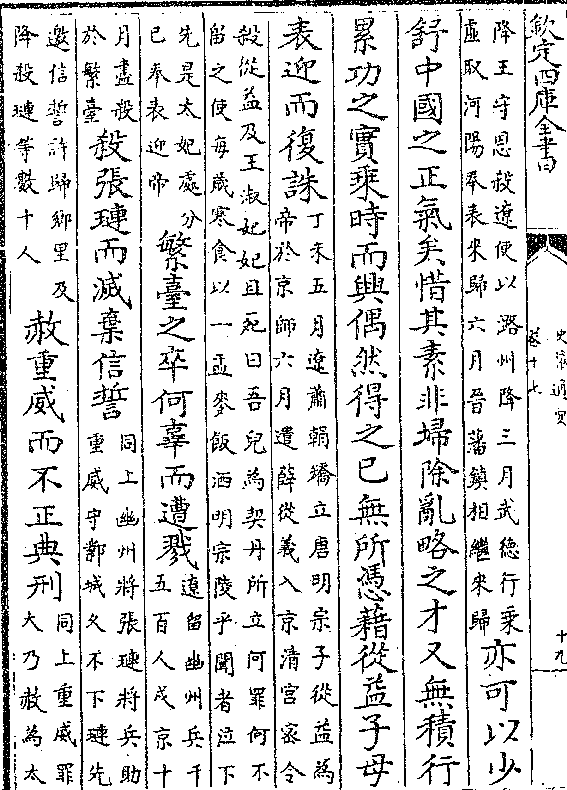 欽定四庫全書
史纂通要
卷十七
十九
降王守恩殺遼使以潞州降三月武德行乘
虛取河陽奉表來歸六月晉藩鎮相繼來歸
亦可以少
舒中國之正氣矣惜其素非埽除亂略之才又無積行
累功之實乘時而興偶然得之已無所憑藉從益子母
表迎而復誅
丁未五月遼蕭翰矯立唐明宗子從益為
帝於京師六月遣薛從義入京清宮宻令
殺從益及王淑妃妃且死曰吾兒為契丹所立何罪何不
留之使每歲寒食以一盂麥飯洒明宗陵乎聞者泣下
先是太妃處分
已奉表迎帝
繁臺之卒何辜而遭戮
遼留幽州兵千
五百人戍京十
月盡殺
於繁臺
殺張璉而滅棄信誓
同上幽州將張璉將兵助
重威守鄴城久不下璉先
邀信誓許歸鄉里及
降殺璉等數十人
赦重威而不正典刑
同上重威罪
大乃赦為太